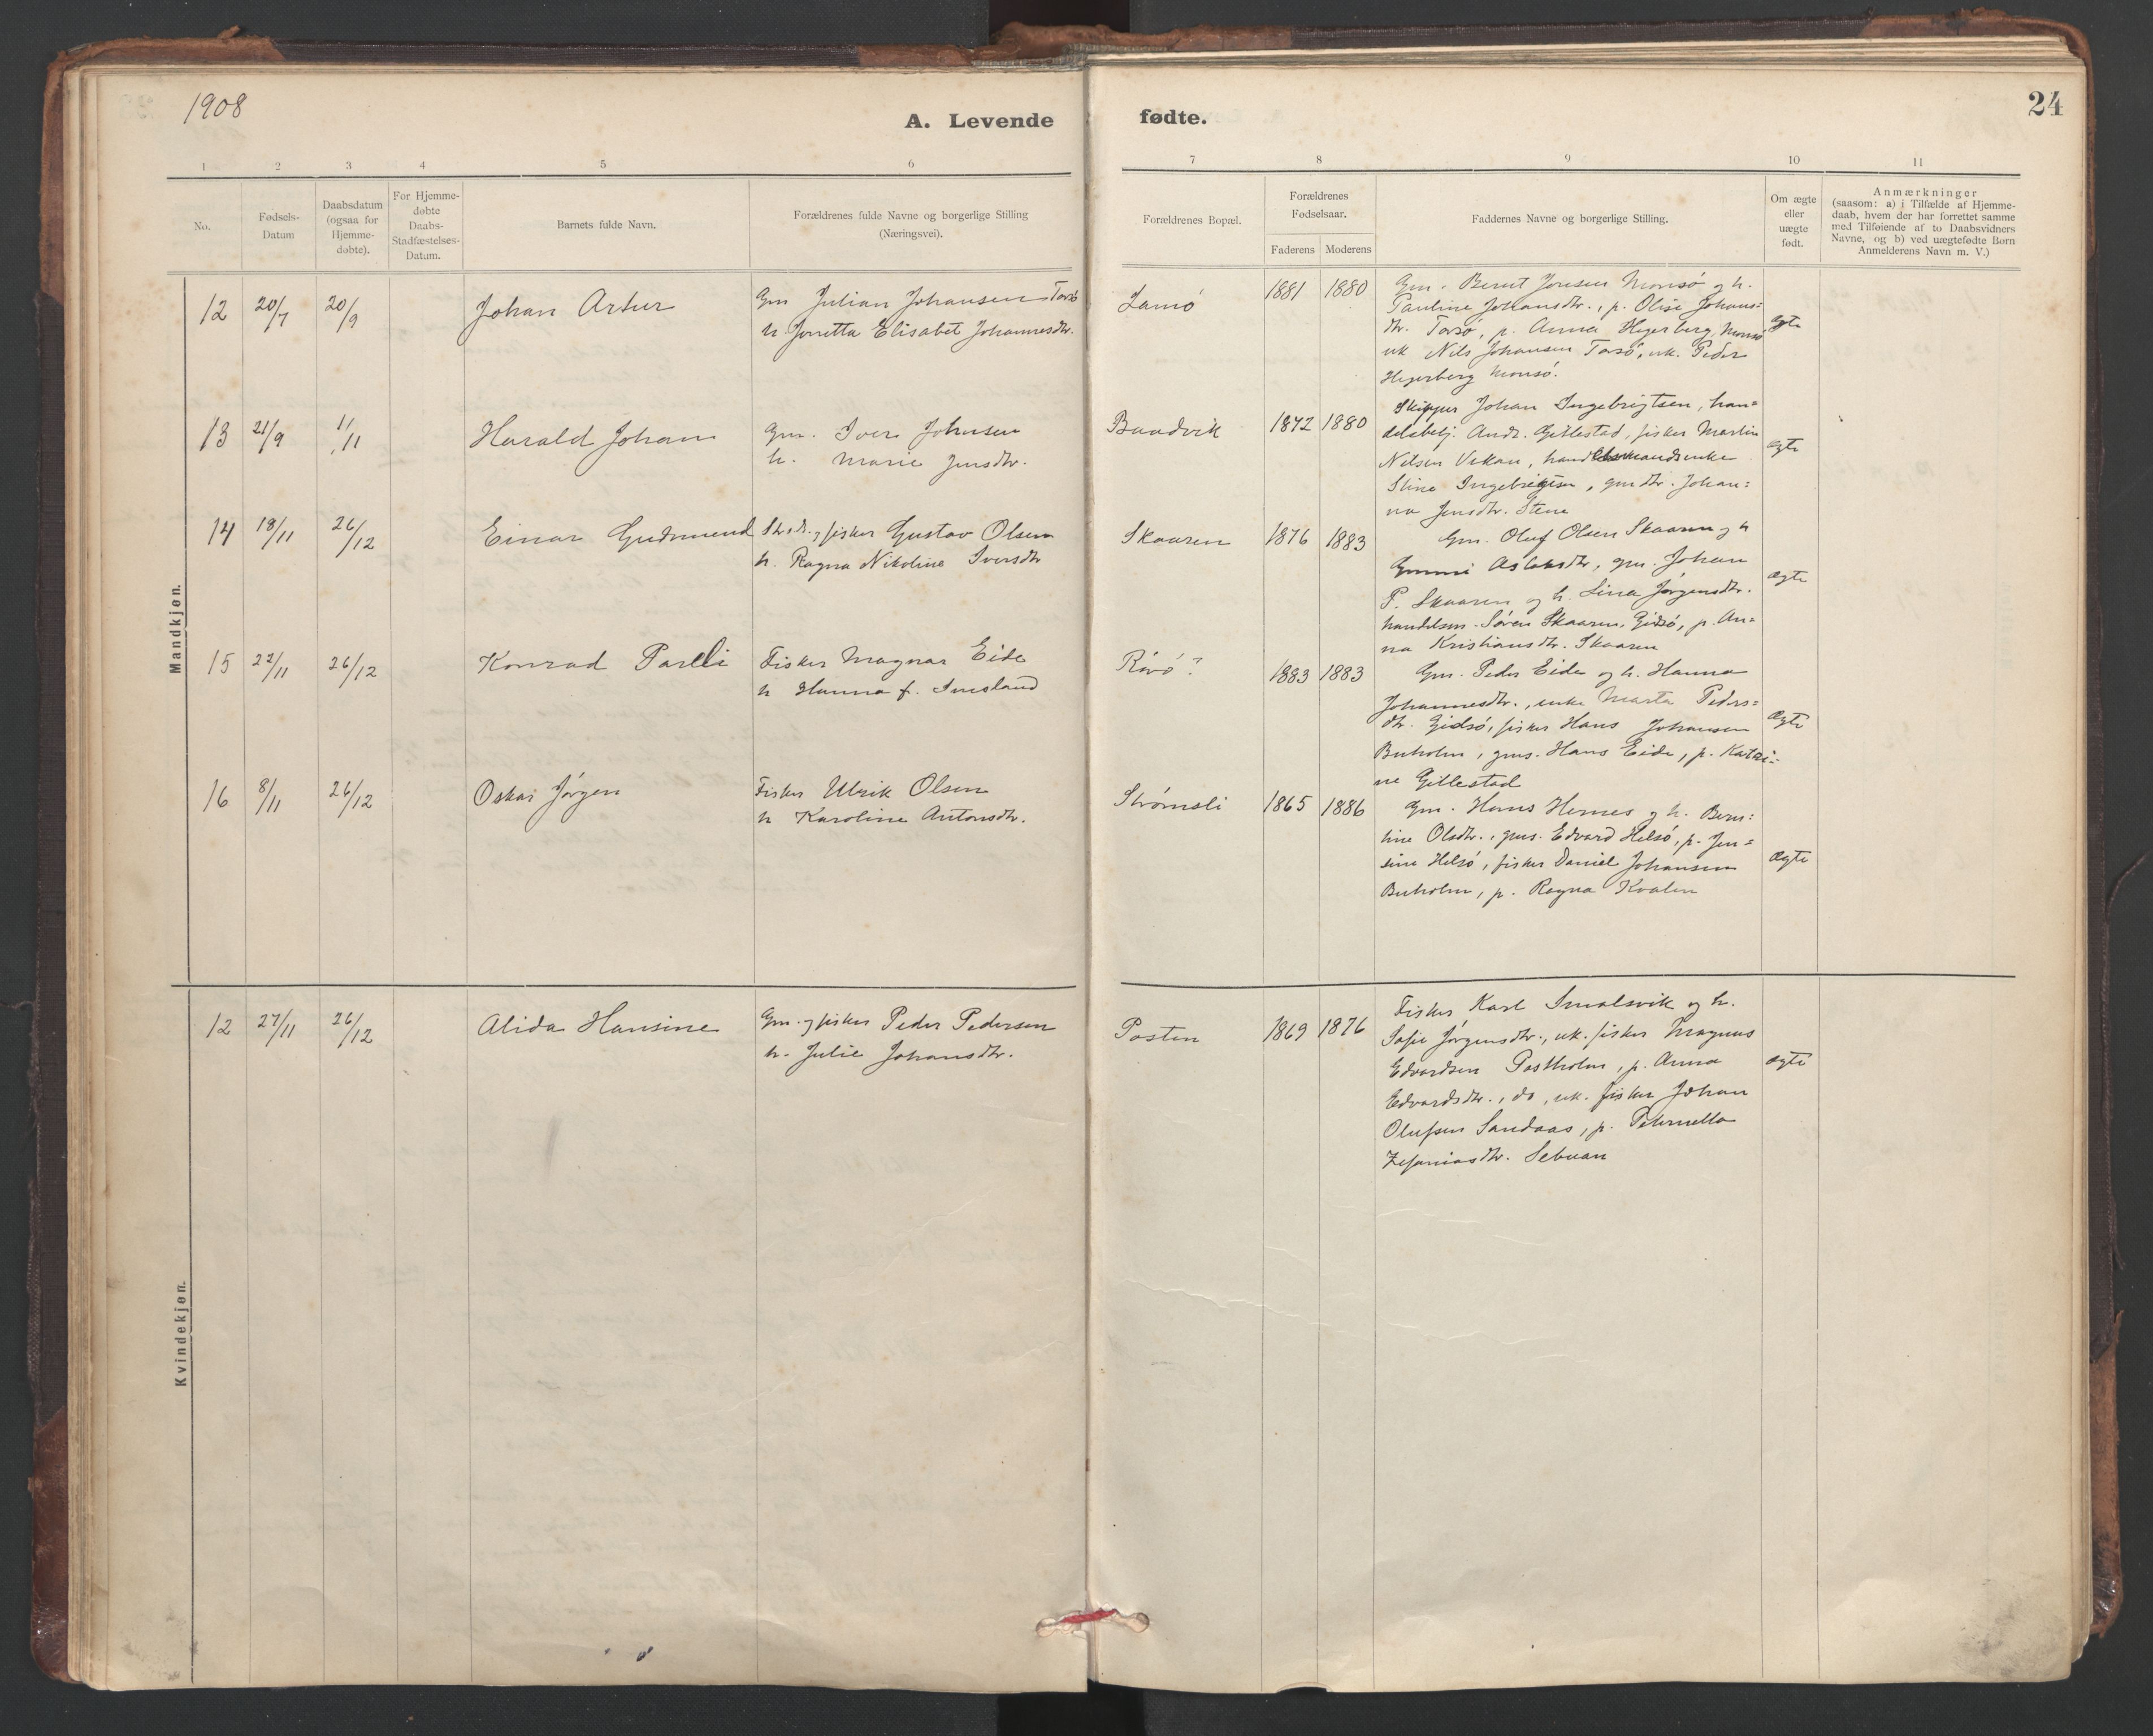 1908
A. Levende fødte.
24
1
2
3
4
5
6
7
8
9
10
11
No.
Fødsels-
Datum
Daabsdatum
(ogsaa for
Hjemme-
døbte).
For Hjemme-
døbte
Daabs-
Stadfæstelses-
Datum.
Barnets fulde Navn.
Forældrenes fulde Navne og borgerlige Stilling
(Næringsvei).
Forældrenes Bopæl.
Forældrenes
Fødselsaar.
Faderens
Moderens
Faddernes Navne og borgerlige Stilling.
Om ægte
eller
uægte
født.
Anmærkninger
(saasom: a) i Tilfælde af Hjemme-
daab, hvem der har forrettet samme
med Tilføiende af to Daabsvidners
Navne, og b) ved uægtefødte Børn
Anmelderens Navn m. V.)
Mandkjøn.
12 20/7 20/9 Johan Artur
Gm Julian Johansen Torsø
h. Jorretta Elisabet Johannesdtr.
Lamø
1881 1880
Gm. Bernt Jonsen Monsø og h.
Pauline Johansdtr., p. Olise Johans=
dtr. Torsø, p. Anna Hegerberg Monsø
uk Nils Johansen Torsø, uk. Peder
Hegerberg Monsø.
ægte
13 21/9 1/11 Harald Johan
Gm. Iver Johnsen
h. Marie Jensdtr.
Baadvik
1872 1880
Skipper Johan Ingebrigtsen, han=
delsbetj. Andr. Gittestad, fisker Martin
Nilsen Vikan, handelsmandsenke
Stine Ingebrigtsen, gmdtr. Johan=
na Jensdtr. Stene
ægte
14 18/11 26/12 Einar Gudmund
Strds. og fisker Gustav Olsen
h. Ragna Nikoline Iversdtr
Skaaren
1876 1883
Gm. Oluf Olsen Skaaren og h
Gunni Aslaksdtr, gm. Johan
P. Skaaren og h. Lina Jørgensdtr.
handelsm. Søren Skaaren, Gidsø, p. An=
na Kristiansdtr. Skaaren
ægte
15 22/11 26/12 Konrad Parelli
Fisker Magnar Eide
h Hanna f. Imsland
Rövö?
1883 1883
Gm. Peder Eide og h. Hanna
Johannesdtr., enke Marta Peders=
dtr. Gidsø, fisker Hans Johansen
Buholm, gms. Hans Eide, p. Katri=
ne Gittestad
ægte
16 8/11 26/12 Oskar Jørgen
Fisker Ulrik Olsen
h Karoline Antonsdtr.
Strømsli
1865 1886
Gm. Hans Hernes og h. Bern=
tine Olsdtr., gms. Edvard Helsø, p. Jen=
sine Helsø, fisker Daniel Johansen
Buholm, p. Ragna Kvalen
ægte
Kvindekjøn.
12 27/11 26/12 Alida Hansine
Gm. og fisker Peder Pedersen
h. Julie Johansdtr.
Posten
1869 1876
Fisker Karl Smalsvik og h.
Sofie Jørgensdtr., uk. fisker Magnus
Edvardsen Postholm, p. Anna
Edvardsdtr., do, uk. fisker Johan
Olufsen Sandaas, p. Peternella
Zefaniasdtr. Sebuan
ægte